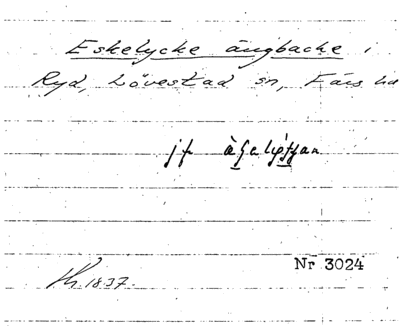 Eskelycke ängbacke i
Ryd, Lövestad sn, Färs hd
jf
Nr 3024
1837.